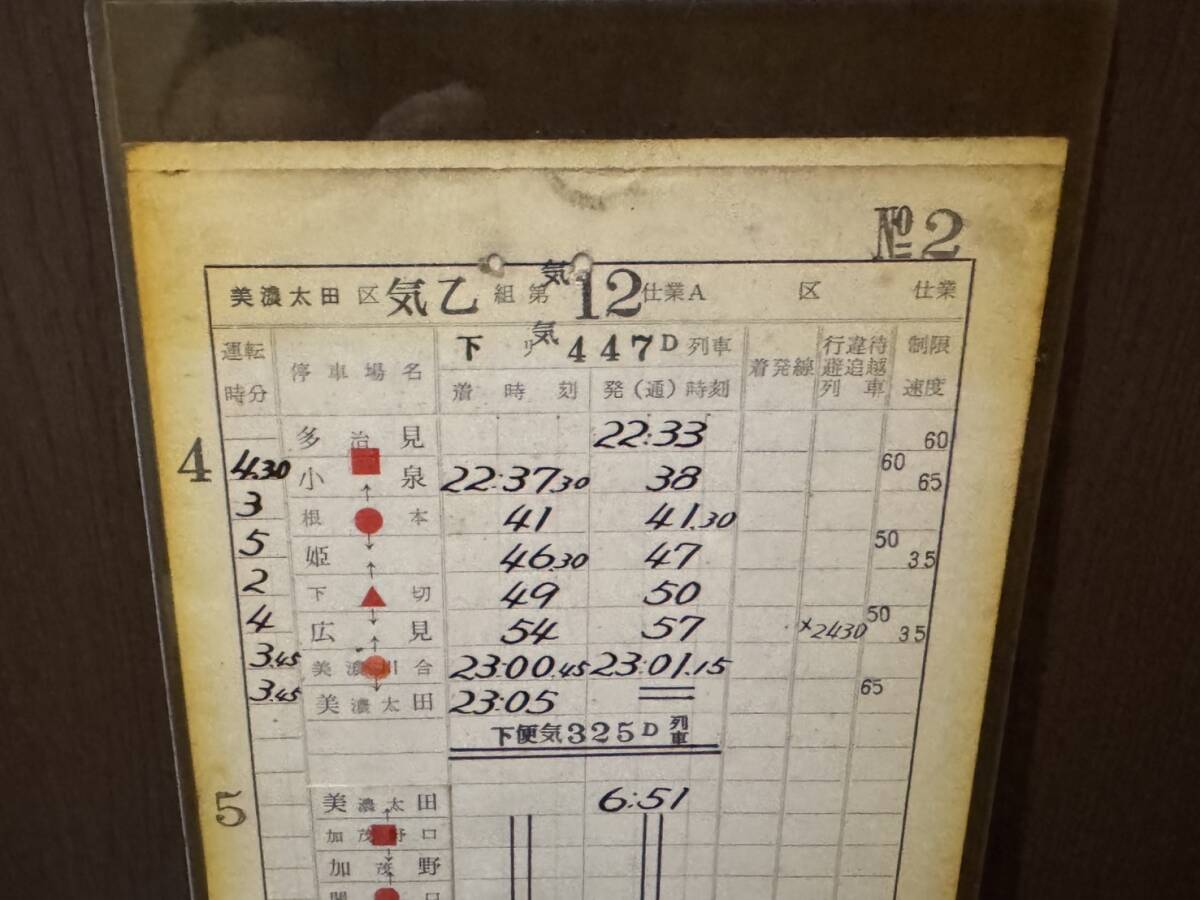 №2
美濃太田 区 気乙 組 第 気12 仕業A 区 仕業
運転時分 停車場名 下り 気447D列車 着発線 行違待避追越列車 制限速度
着時刻 発(通)時刻
4
多治見 22:33 60
4.30 小泉 22:37.30 38 60 65
3 根本 41 41.30
5 姫 46.30 47 50 35
2 下切 49 50
4 広見 54 57 ×2430 50 35
3.45 美濃川合 23:00.45 23:01.15
3.45 美濃太田 23:05 65
下便気325D列車
5
美濃太田 6:51
加茂野口
加茂野
口